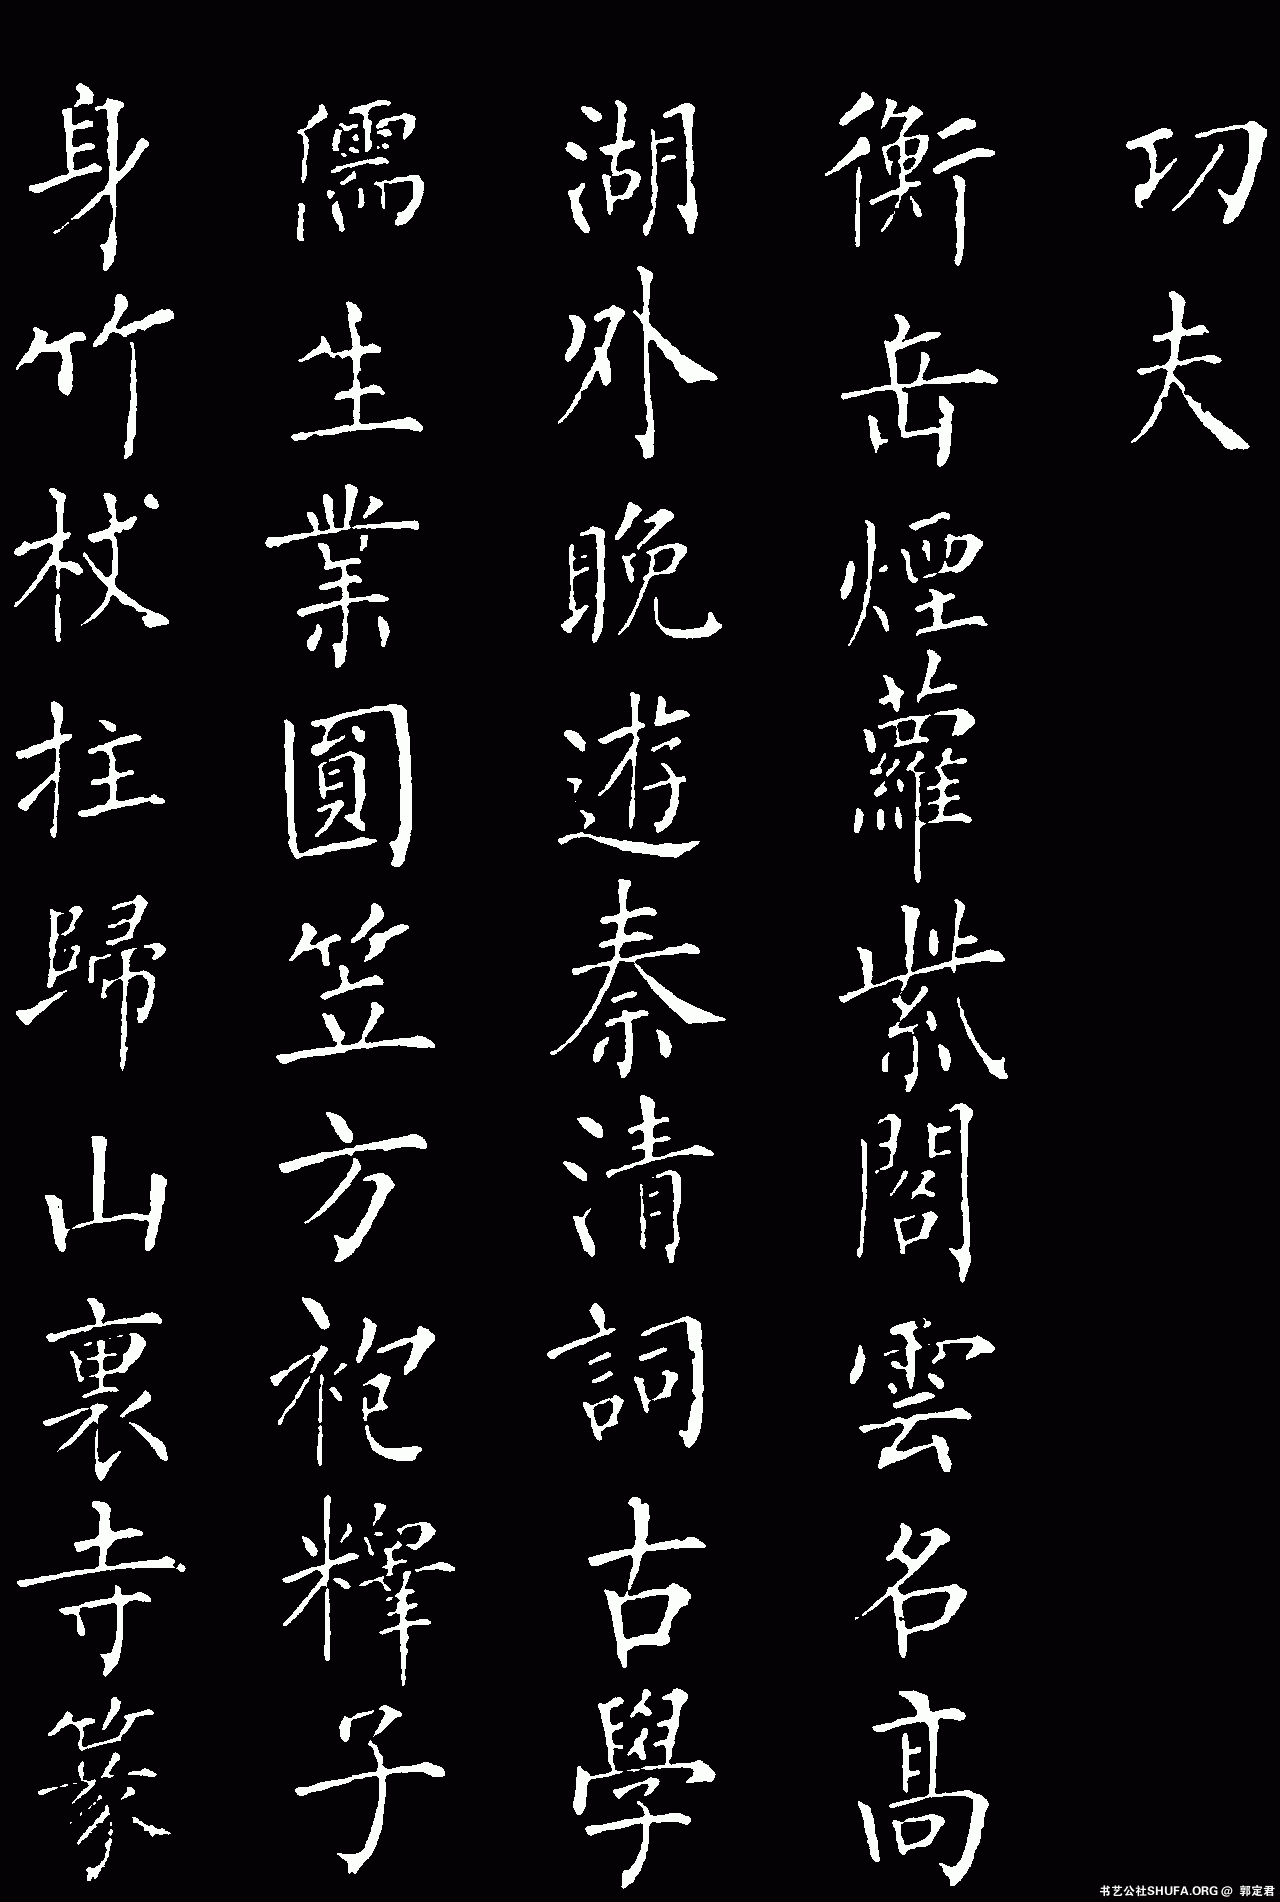 功夫
衡岳煙蘿紫閣雲名高
湖外晚遊秦清詞古學
儒生業圓笠方袍釋子
身竹杖拄歸山裏寺篆
书艺公社SHUFA.ORG @ 郭定君